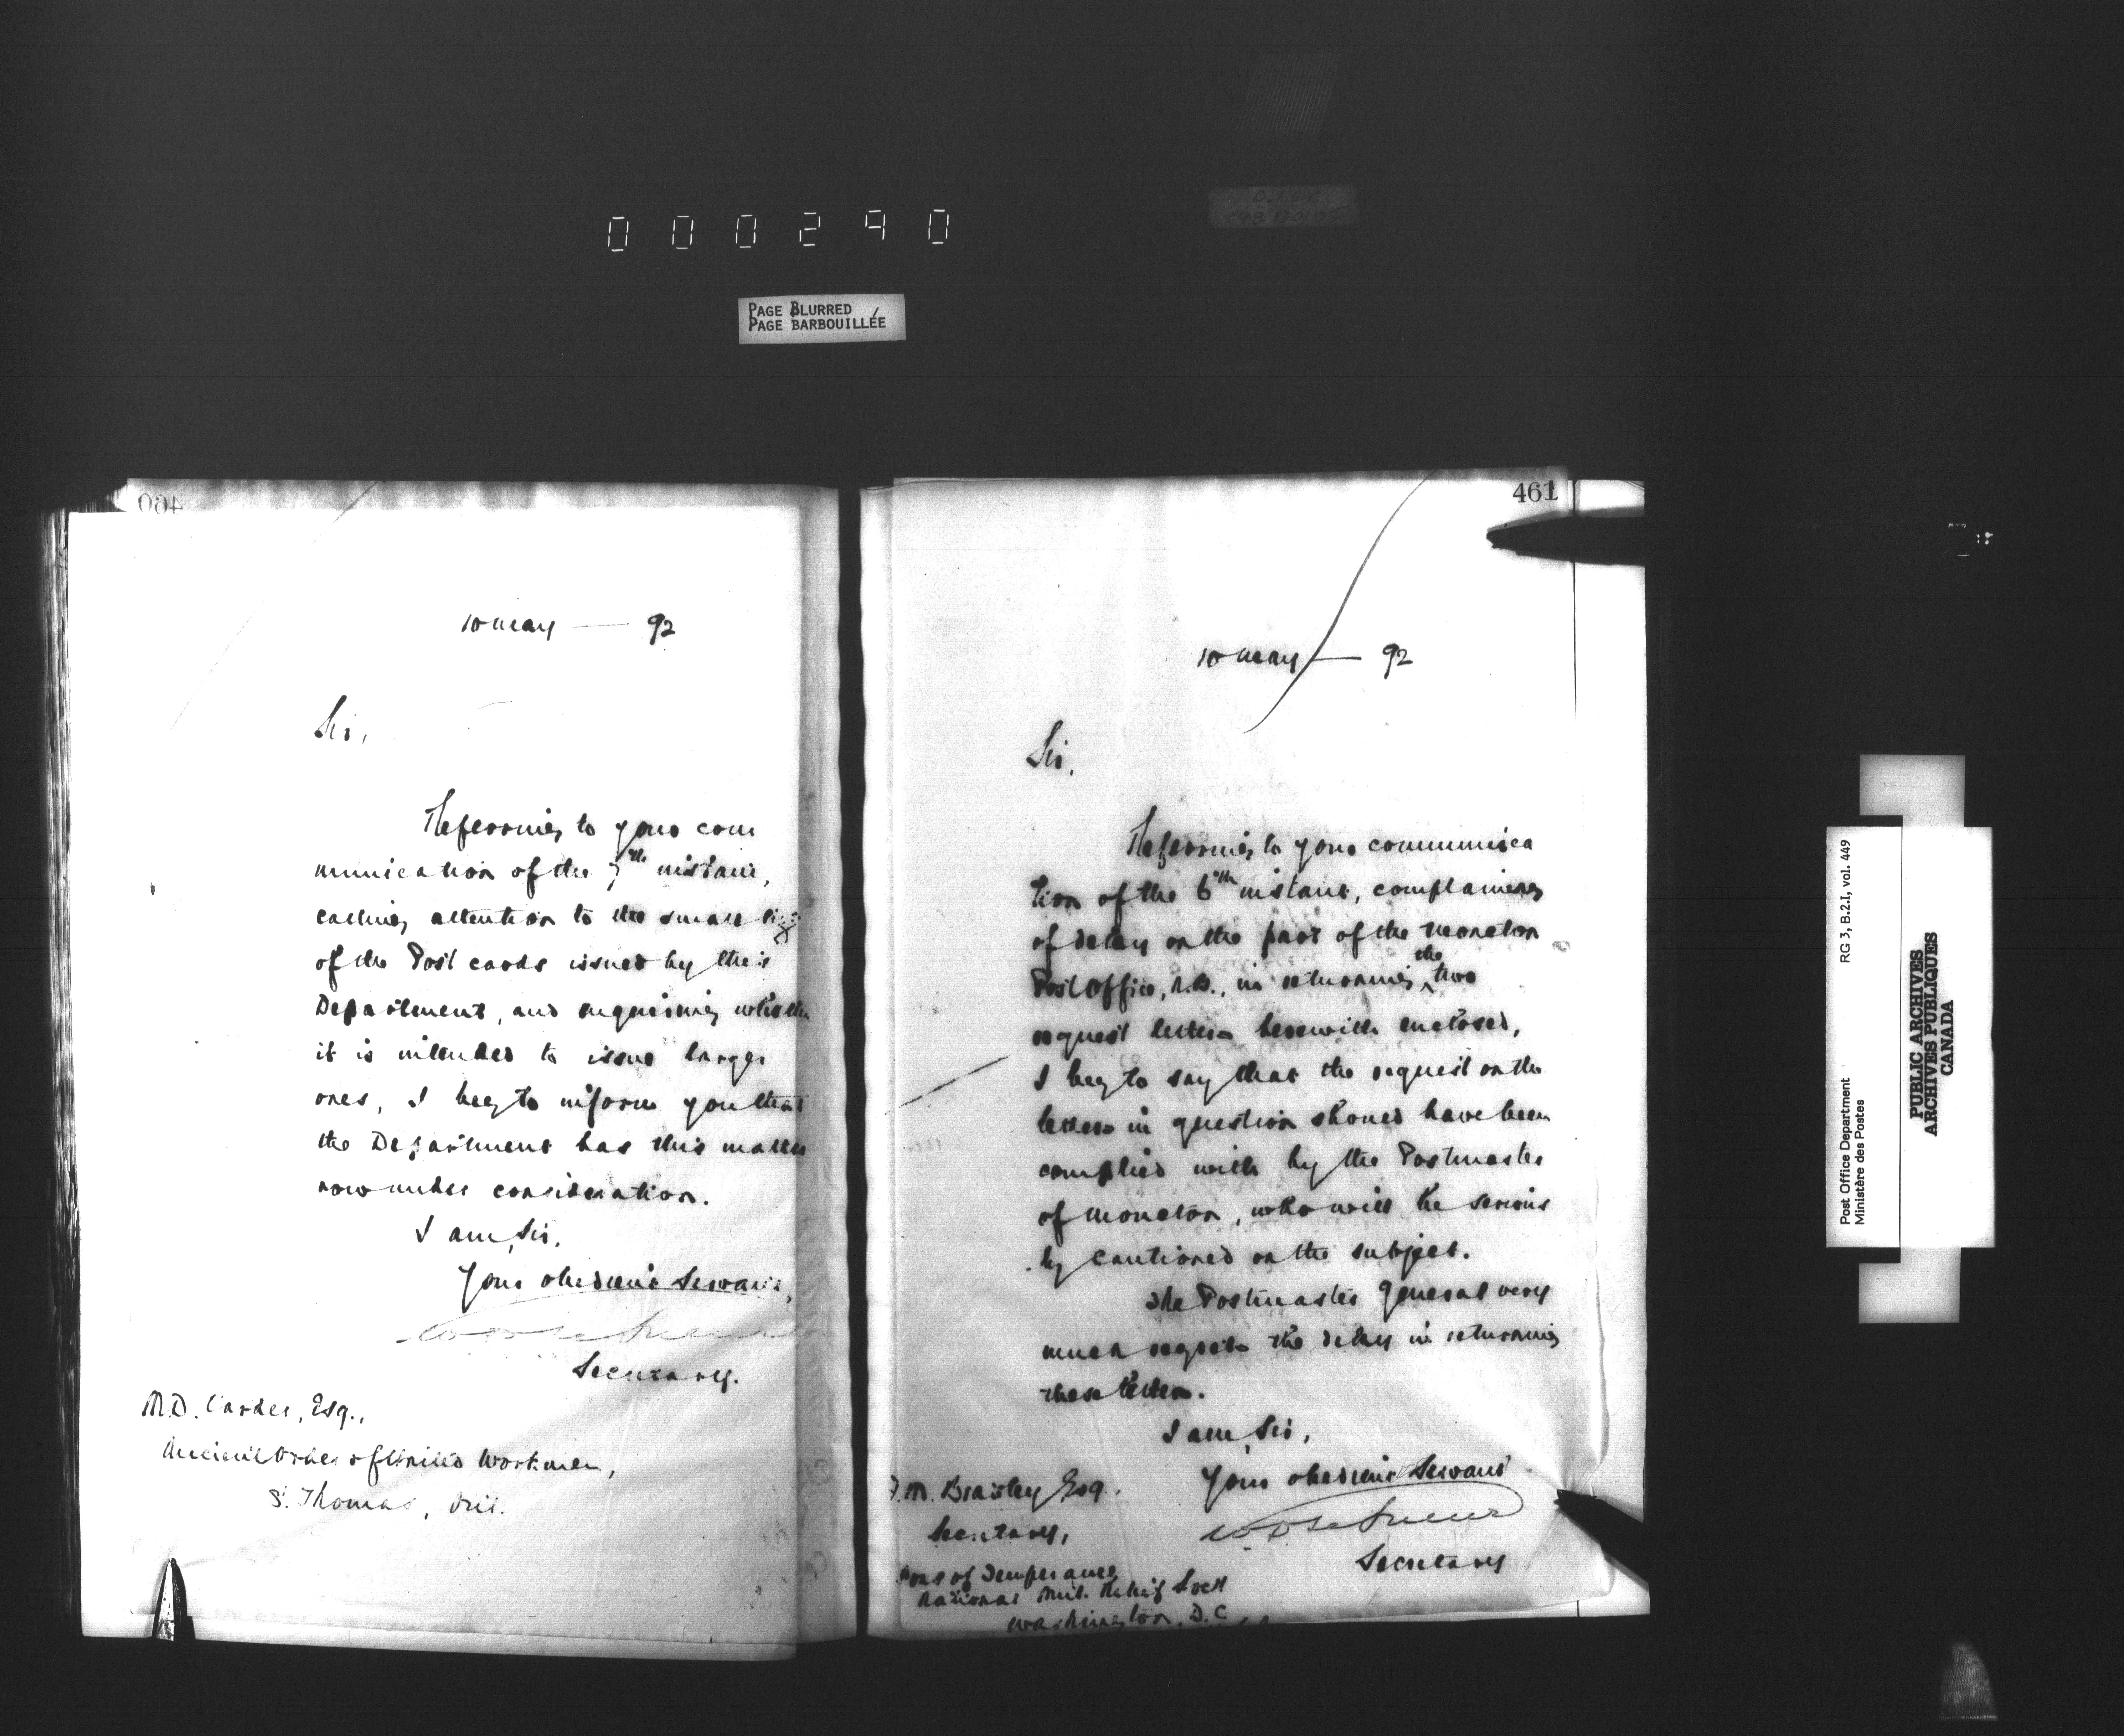 000290
PAGE BLURRED
PAGE BARBOUILLÉE
460
10 May — 92
Sir,
Referring to your com
munication of the 7th instant,
calling attention to the small size
of the Post cards issued by this
Department, and enquiring whether
it is intended to issue larger
ones, I beg to inform you that
the Department has this matter
now under consideration.
I am, Sir,
Your obedient Servant,
Secretary.
M.D. Carder, Esq.,
Ancient Order of United Workmen,
St. Thomas, Ont.
461
10 May — 92
Sir,
Referring to your communica
tion of the 6th instant, complaining
of delay on the part of the Moncton
Post Office, N.B., in returning the two
request letters herewith enclosed,
I beg to say that the request on the
letters in question should have been
complied with by the Postmaster
of Moncton, who will be serious
ly cautioned on the subject.
The Postmaster General very
much regrets the delay in returning
these letters.
I am, Sir,
Your obedient Servant
Secretary
M. Bradley Esq.
Secretary,
Sons of Temperance
National Mut. Relief Socy
Washington, D.C.
RG 3, B.2.I, vol. 449
Post Office Department
Ministère des Postes
PUBLIC ARCHIVES
ARCHIVES PUBLIQUES
CANADA